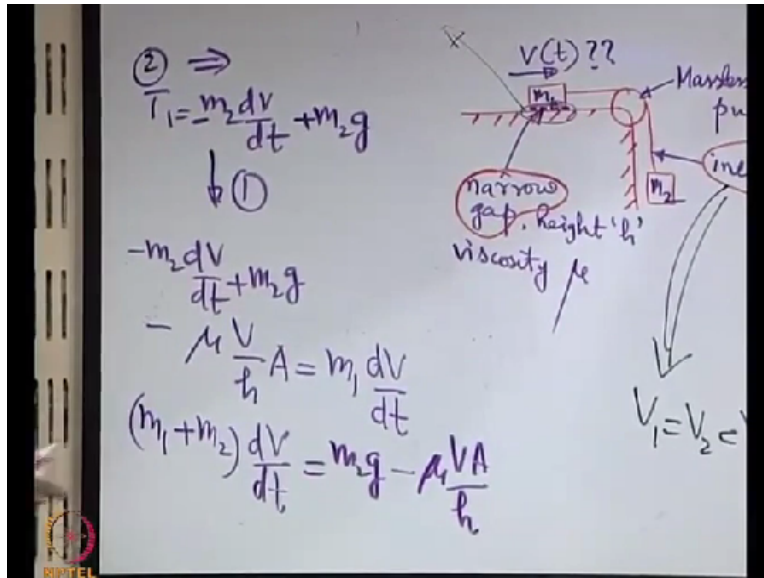 ② ⇒
T₁ = -m₂ dV/dt + m₂g
↓ ①
-m₂ dV/dt + m₂g
- μ V/h A = m₁ dV/dt
(m₁ + m₂) dV/dt = m₂g - μ VA/h
V(t) ??
m₁
Massless
pu
ine
m₂
narrow
gap, height 'h'
viscosity μ
V₁ = V₂ =
NPTEL